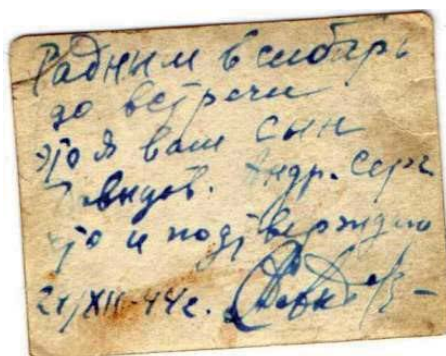 Радным в сибирь
до встречи
это я ваш сын
Давыдов. Андр. Серг
что и подтверждаю
XII-44 г.